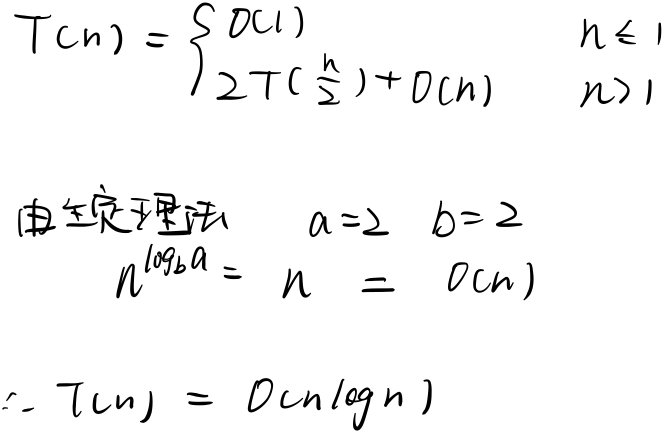 T(n) = { O(1) n ≤ 1
2T(n/2) + O(n) n > 1
由主定理法 a=2 b=2
n^{log_b a} = n = O(n)
∴ T(n) = O(nlogn)